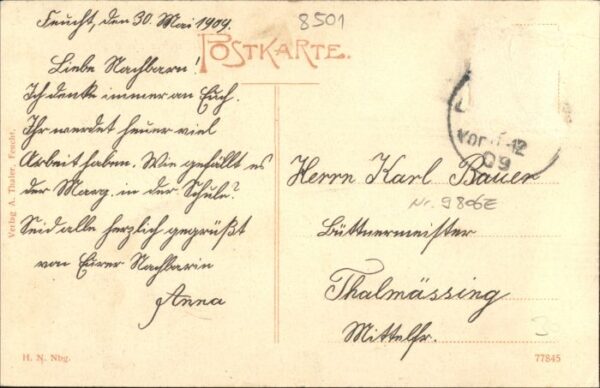 Feucht, den 30. Mai 1909.
8501
POSTKARTE.
Liebe Nachbarn!
Ich denke immer an Euch.
Ihr werdet heuer viel
Arbeit haben. Wie gefällt es
der Marg. in der Schule?
Seid alle herzlich gegrüßt
von Eurer Nachbarin
Anna
Vor. 11-12
09
Herrn Karl Bauer
Nr. 9806E
Büttnermeister
Thalmässing
Mittelfr.
Verlag A. Thaler, Feucht.
H. N. Nbg.
77845